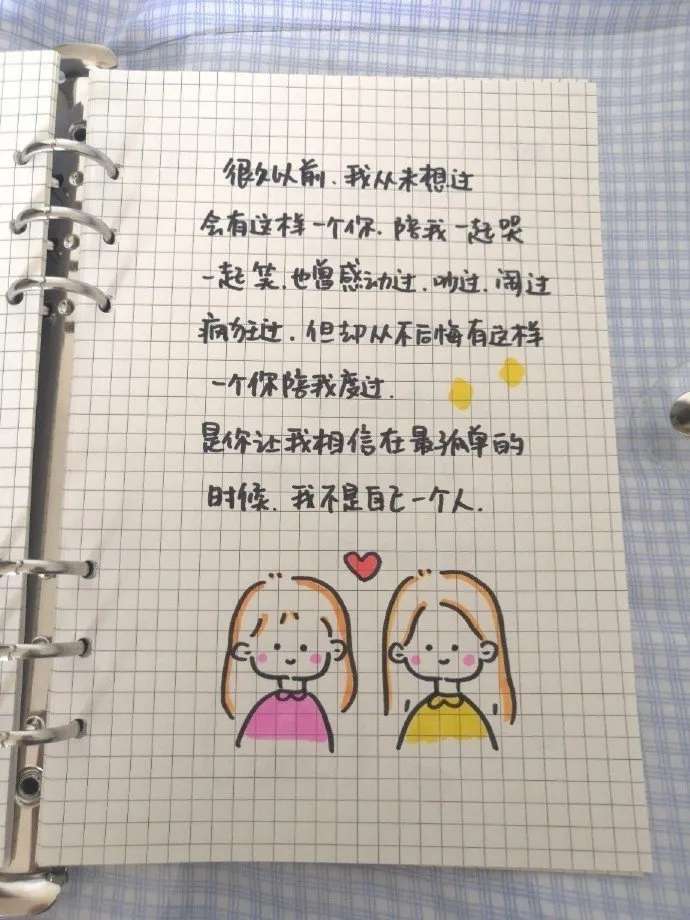 很久以前、我从未想过
会有这样一个你、陪我一起哭
一起笑、也曾感动过、吵过、闹过
疯狂过、但却从不后悔有这样
一个你陪我度过.
是你让我相信在最孤单的
时候、我不是自己一个人.